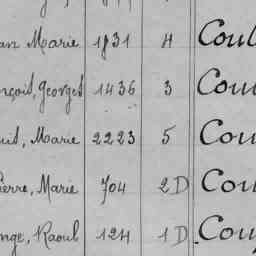 an Marie 1931 4 Coul
nçois, Georges 1436 3 Cou
uis, Marie 2223 5 Cou
ierre, Marie 704 2D Cou
ange, Raoul 124 1D Cou